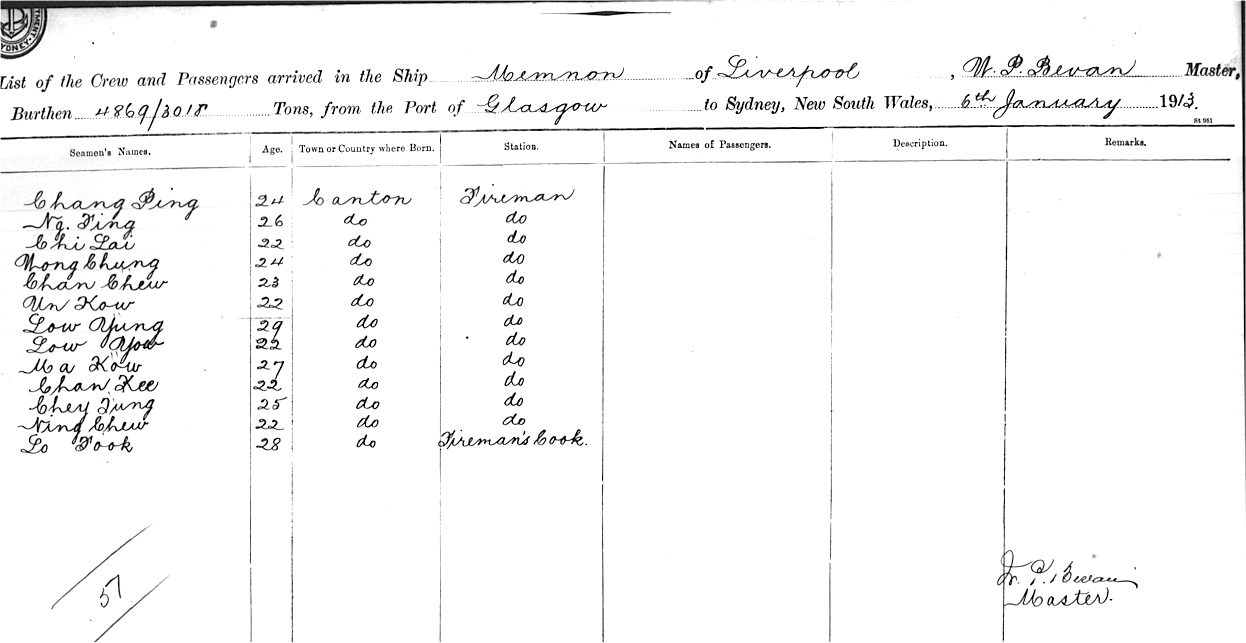 TMENT. SYDNEY.
List of the Crew and Passengers arrived in the Ship Memnon of Liverpool, W. P. Bevan Master,
Burthen 4869/3018 Tons, from the Port of Glasgow to Sydney, New South Wales, 6th January 1913.
St 961
Seamen's Names. Age. Town or Country where Born. Station. Names of Passengers. Description. Remarks.
Chang Ping 24 Canton Fireman
Ng. Fing 26 do do
Chi Lai 22 do do
Wong Chung 24 do do
Chan Chew 23 do do
Un Kow 22 do do
Low Yung 29 do do
Low You 22 do do
Ma Kow 27 do do
Chan Kee 22 do do
Chey Fung 25 do do
Ning Chew 22 do do
Lo Fook 28 do Fireman's Cook.
57
W. P. Bevan
Master.